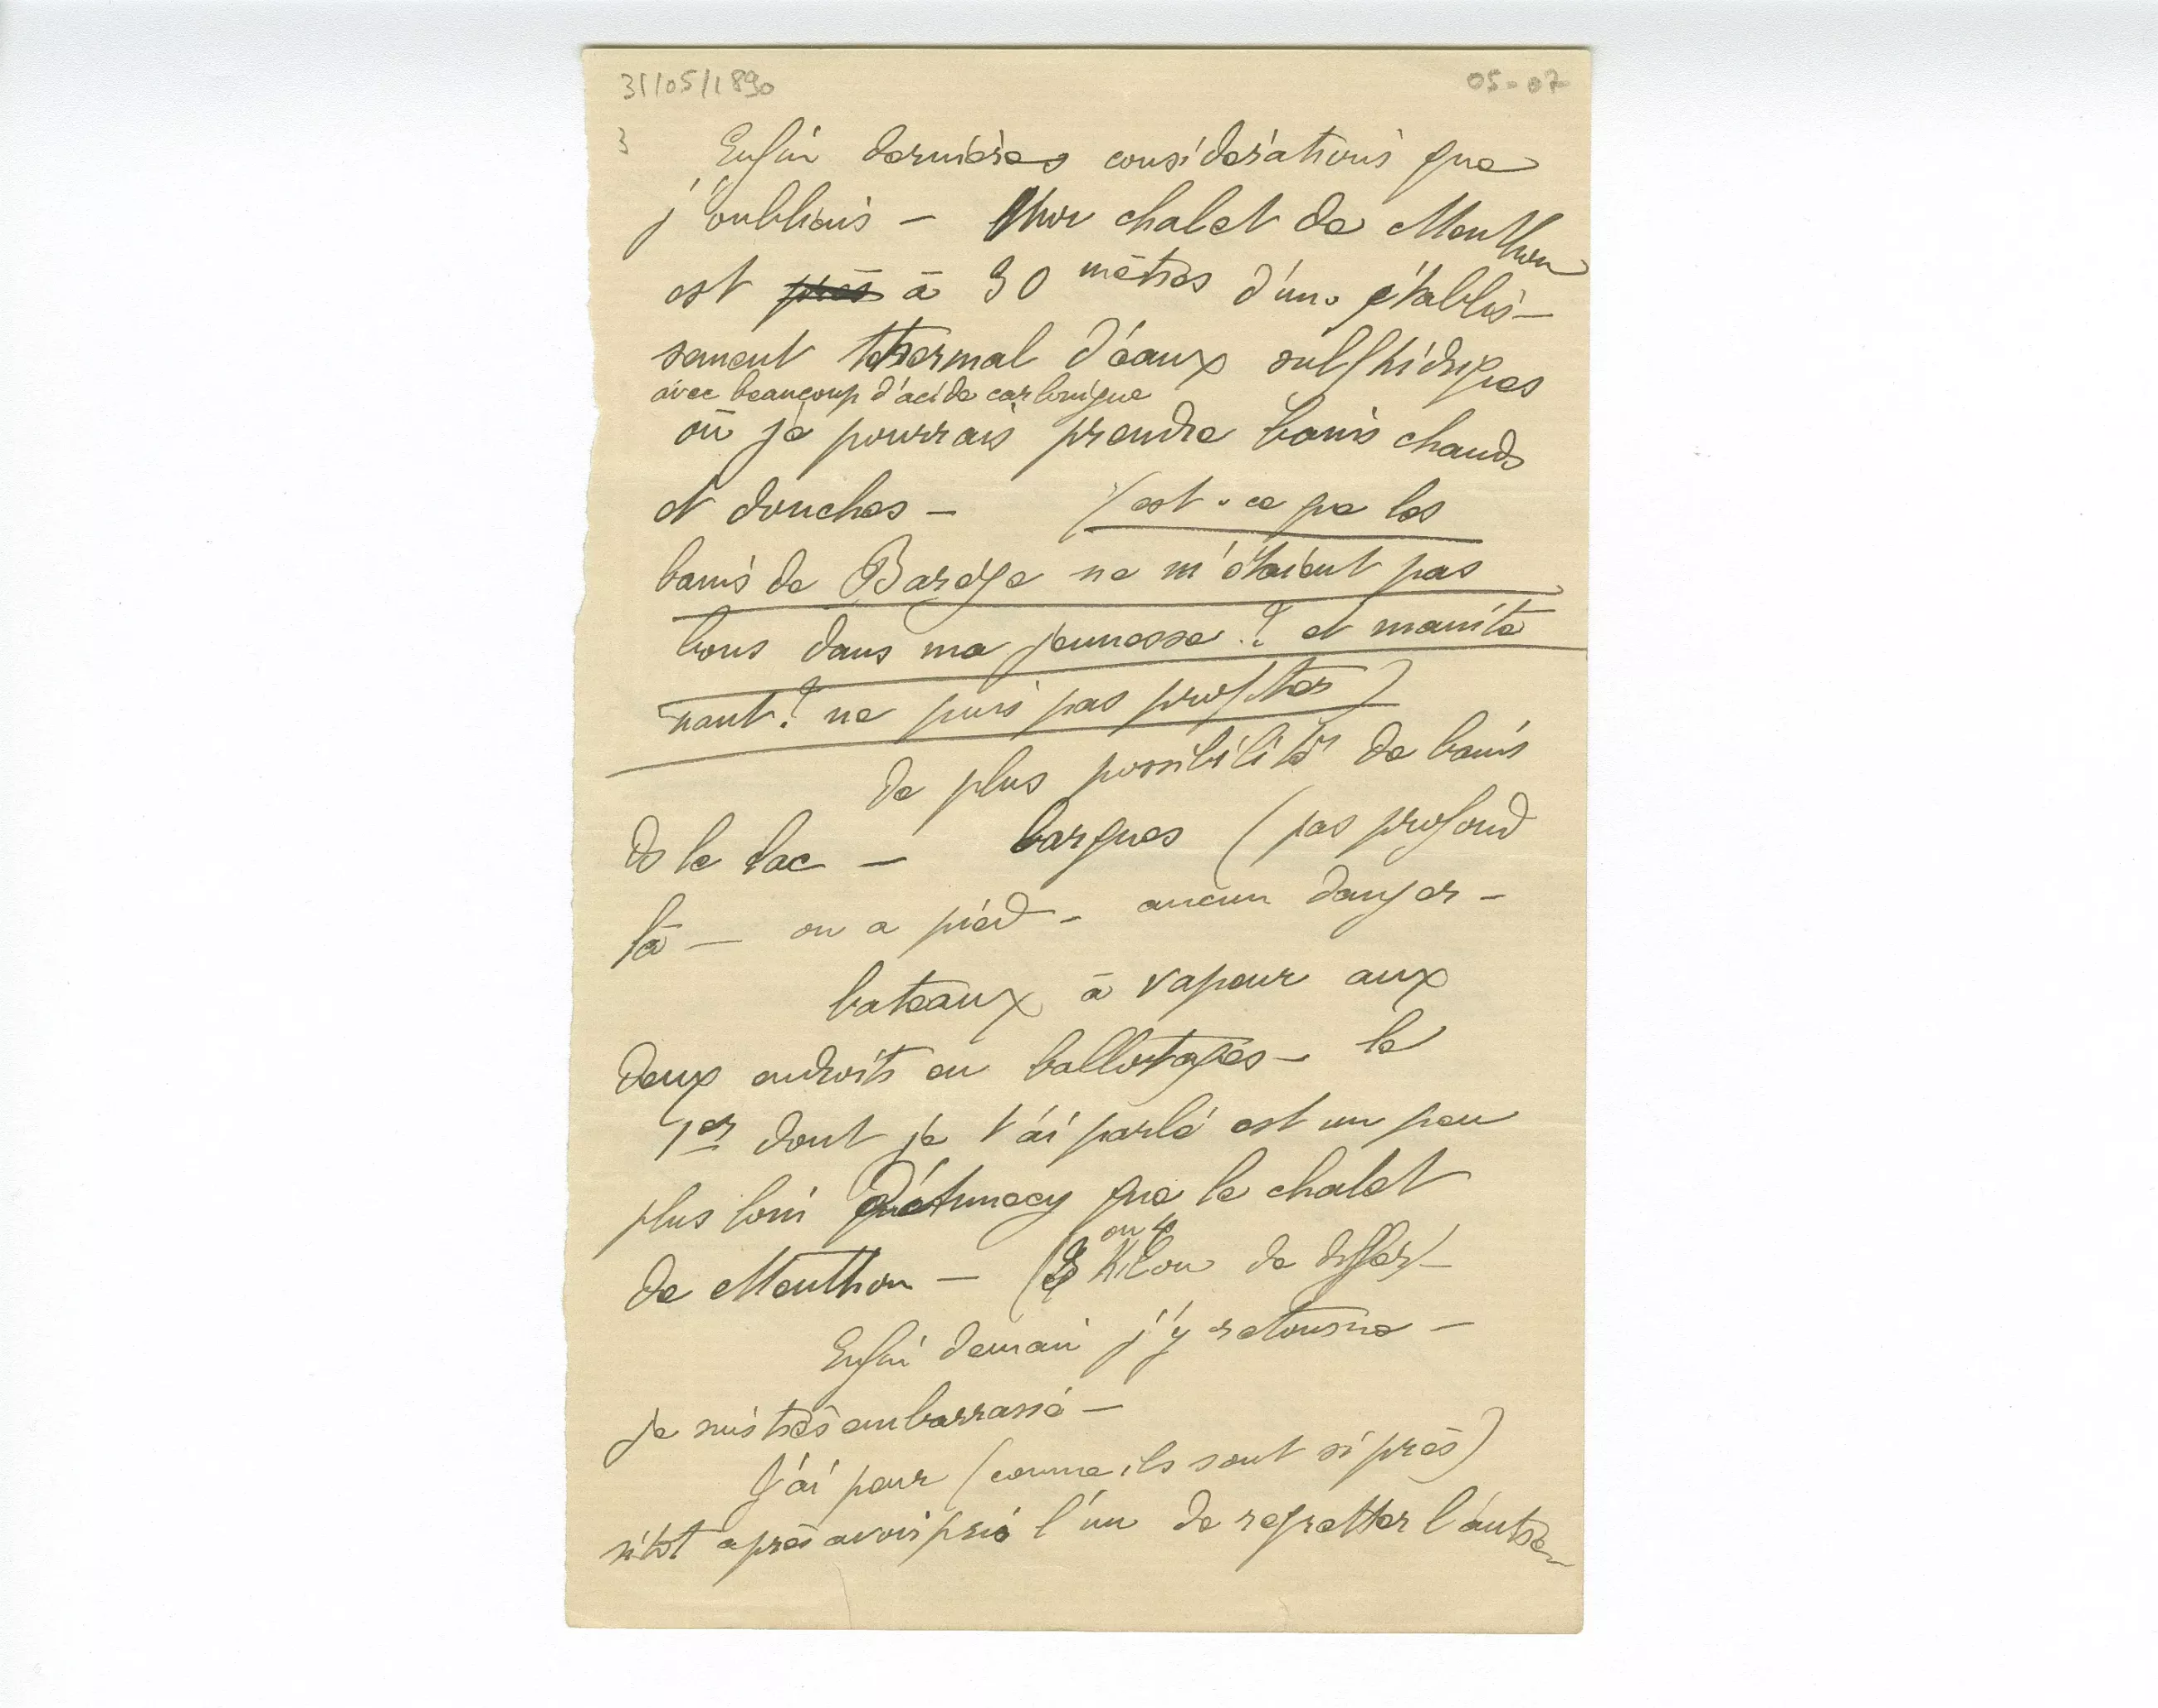 31/05/1890
05-07
3
Enfin dernières considérations que
j'oubliais – Mon chalet de Menthon
est près à 30 mètres d'un établis-
sement thermal d'eaux sulfhidriques
avec beaucoup d'acide carbonique
où je pourrais prendre bains chauds
et douches – (est-ce que les
bains de Barège ne m'étaient pas
bons dans ma jeunesse !? et mainte
nant? ne puis pas profiter)
de plus possibilité de bains
ds le lac – barques (pas profond
là – on a pied – aucun danger –
bateaux à vapeur aux
deux endroits en ballotages – le
1er dont je t'ai parlé est un peu
plus loin d'Annecy que le chalet
ou 4
de Menthon – (3 Kilom de differ –
Enfin demain j'y retourne –
je suis très embarrassé –
J'ai peur (comme ils sont si près)
sitot après avoir pris l'un de regretter l'autre